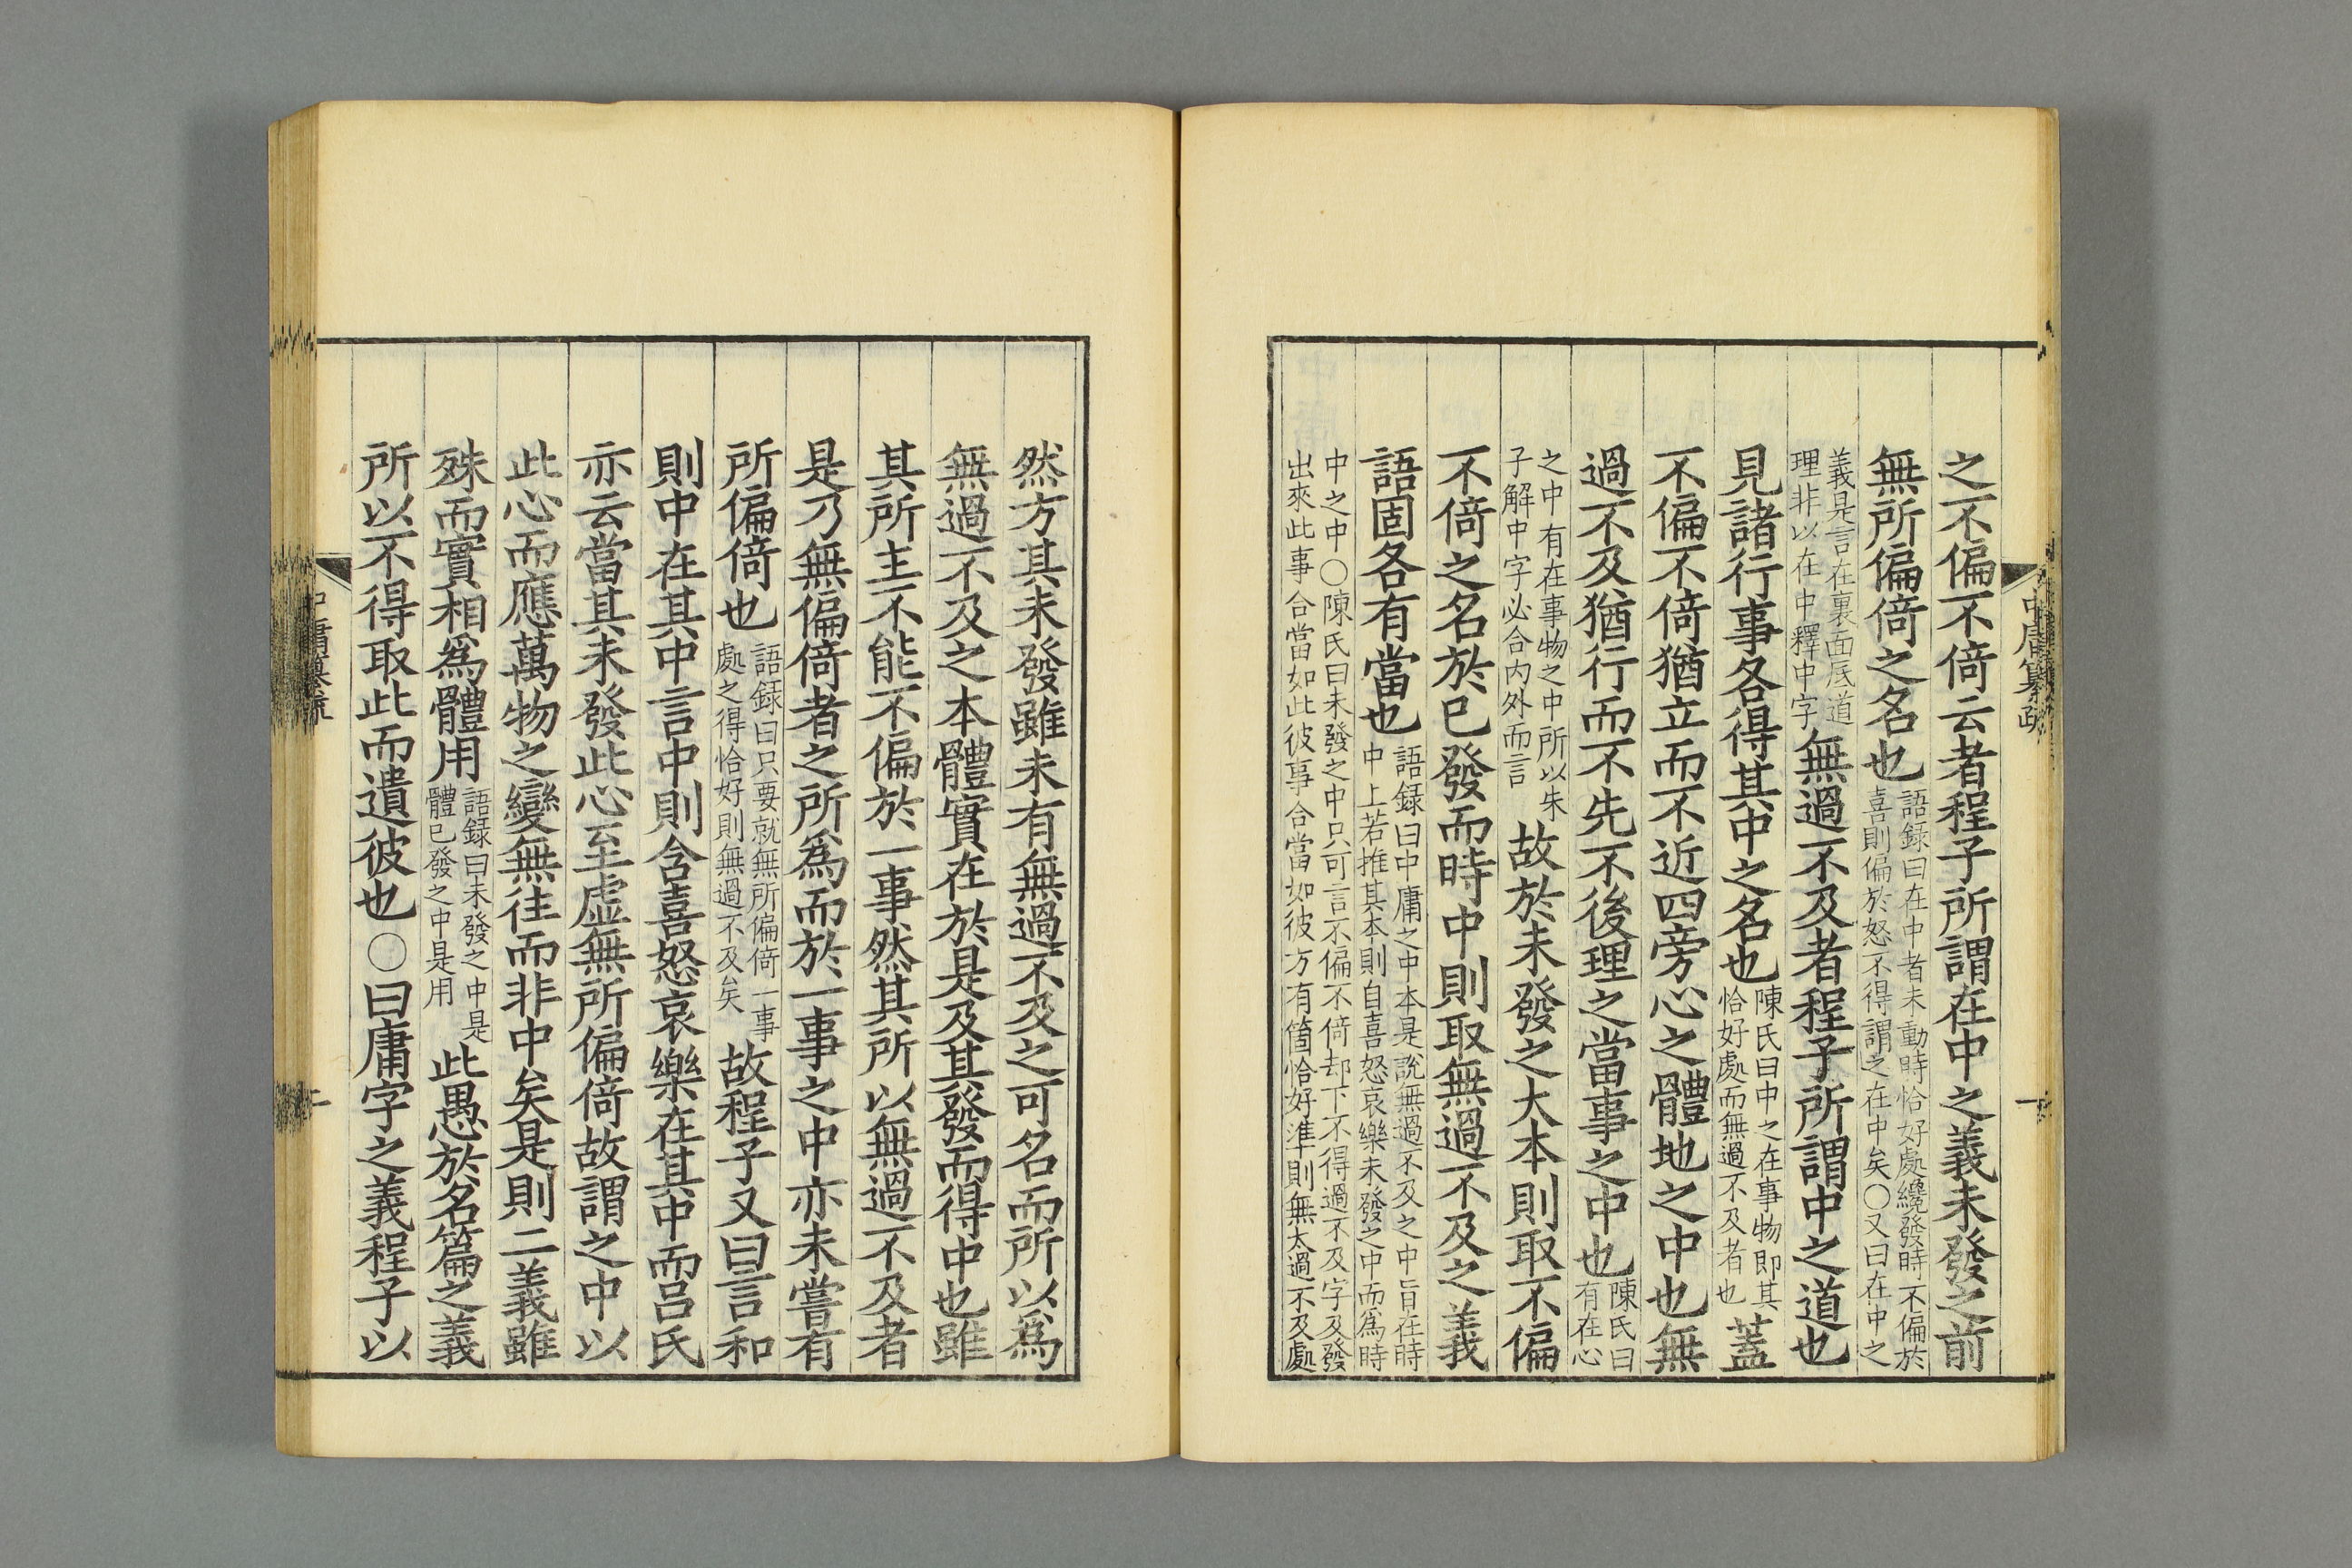 之不偏不倚云者程子所謂在中之義未發之前
無所偏倚之名也語録曰在中者未動時恰好處纔發時不偏於喜則偏於怒不得謂之在中矣〇又曰在中之
義是言在裏面底道理非以在中釋中字無過不及者程子所謂中之道也
見諸行事各得其中之名也陳氏曰中之在事物即其恰好處而無過不及者也蓋
不偏不倚猶立而不近四旁心之體地之中也無
過不及猶行而不先不後理之當事之中也陳氏曰有在心
之中有在事物之中所以朱子解中字必合内外而言故於未發之大本則取不偏
不倚之名於已發而時中則取無過不及之義
語固各有當也語録曰中庸之中本是説無過不及之中旨在時中上若推其本則自喜怒哀樂未發之中而爲時
中之中〇陳氏曰未發之中只可言不偏不倚却下不得過不及字及發出來此事合當如此彼事合當如彼方有箇恰好準則無太過不及處
然方其未發雖未有無過不及之可名而所以爲
無過不及之本體實在於是及其發而得中也雖
其所主不能不偏於一事然其所以無過不及者
是乃無偏倚者之所爲而於一事之中亦未嘗有
所偏倚也語録曰只要就無所偏倚一事處之得恰好則無過不及矣故程子又曰言和
則中在其中言中則含喜怒哀樂在其中而呂氏
亦云當其未發此心至虚無所偏倚故謂之中以
此心而應萬物之變無往而非中矣是則二義雖
殊而實相爲體用語録曰未發之中是體已發之中是用此愚於名篇之義
所以不得取此而遺彼也〇曰庸字之義程子以